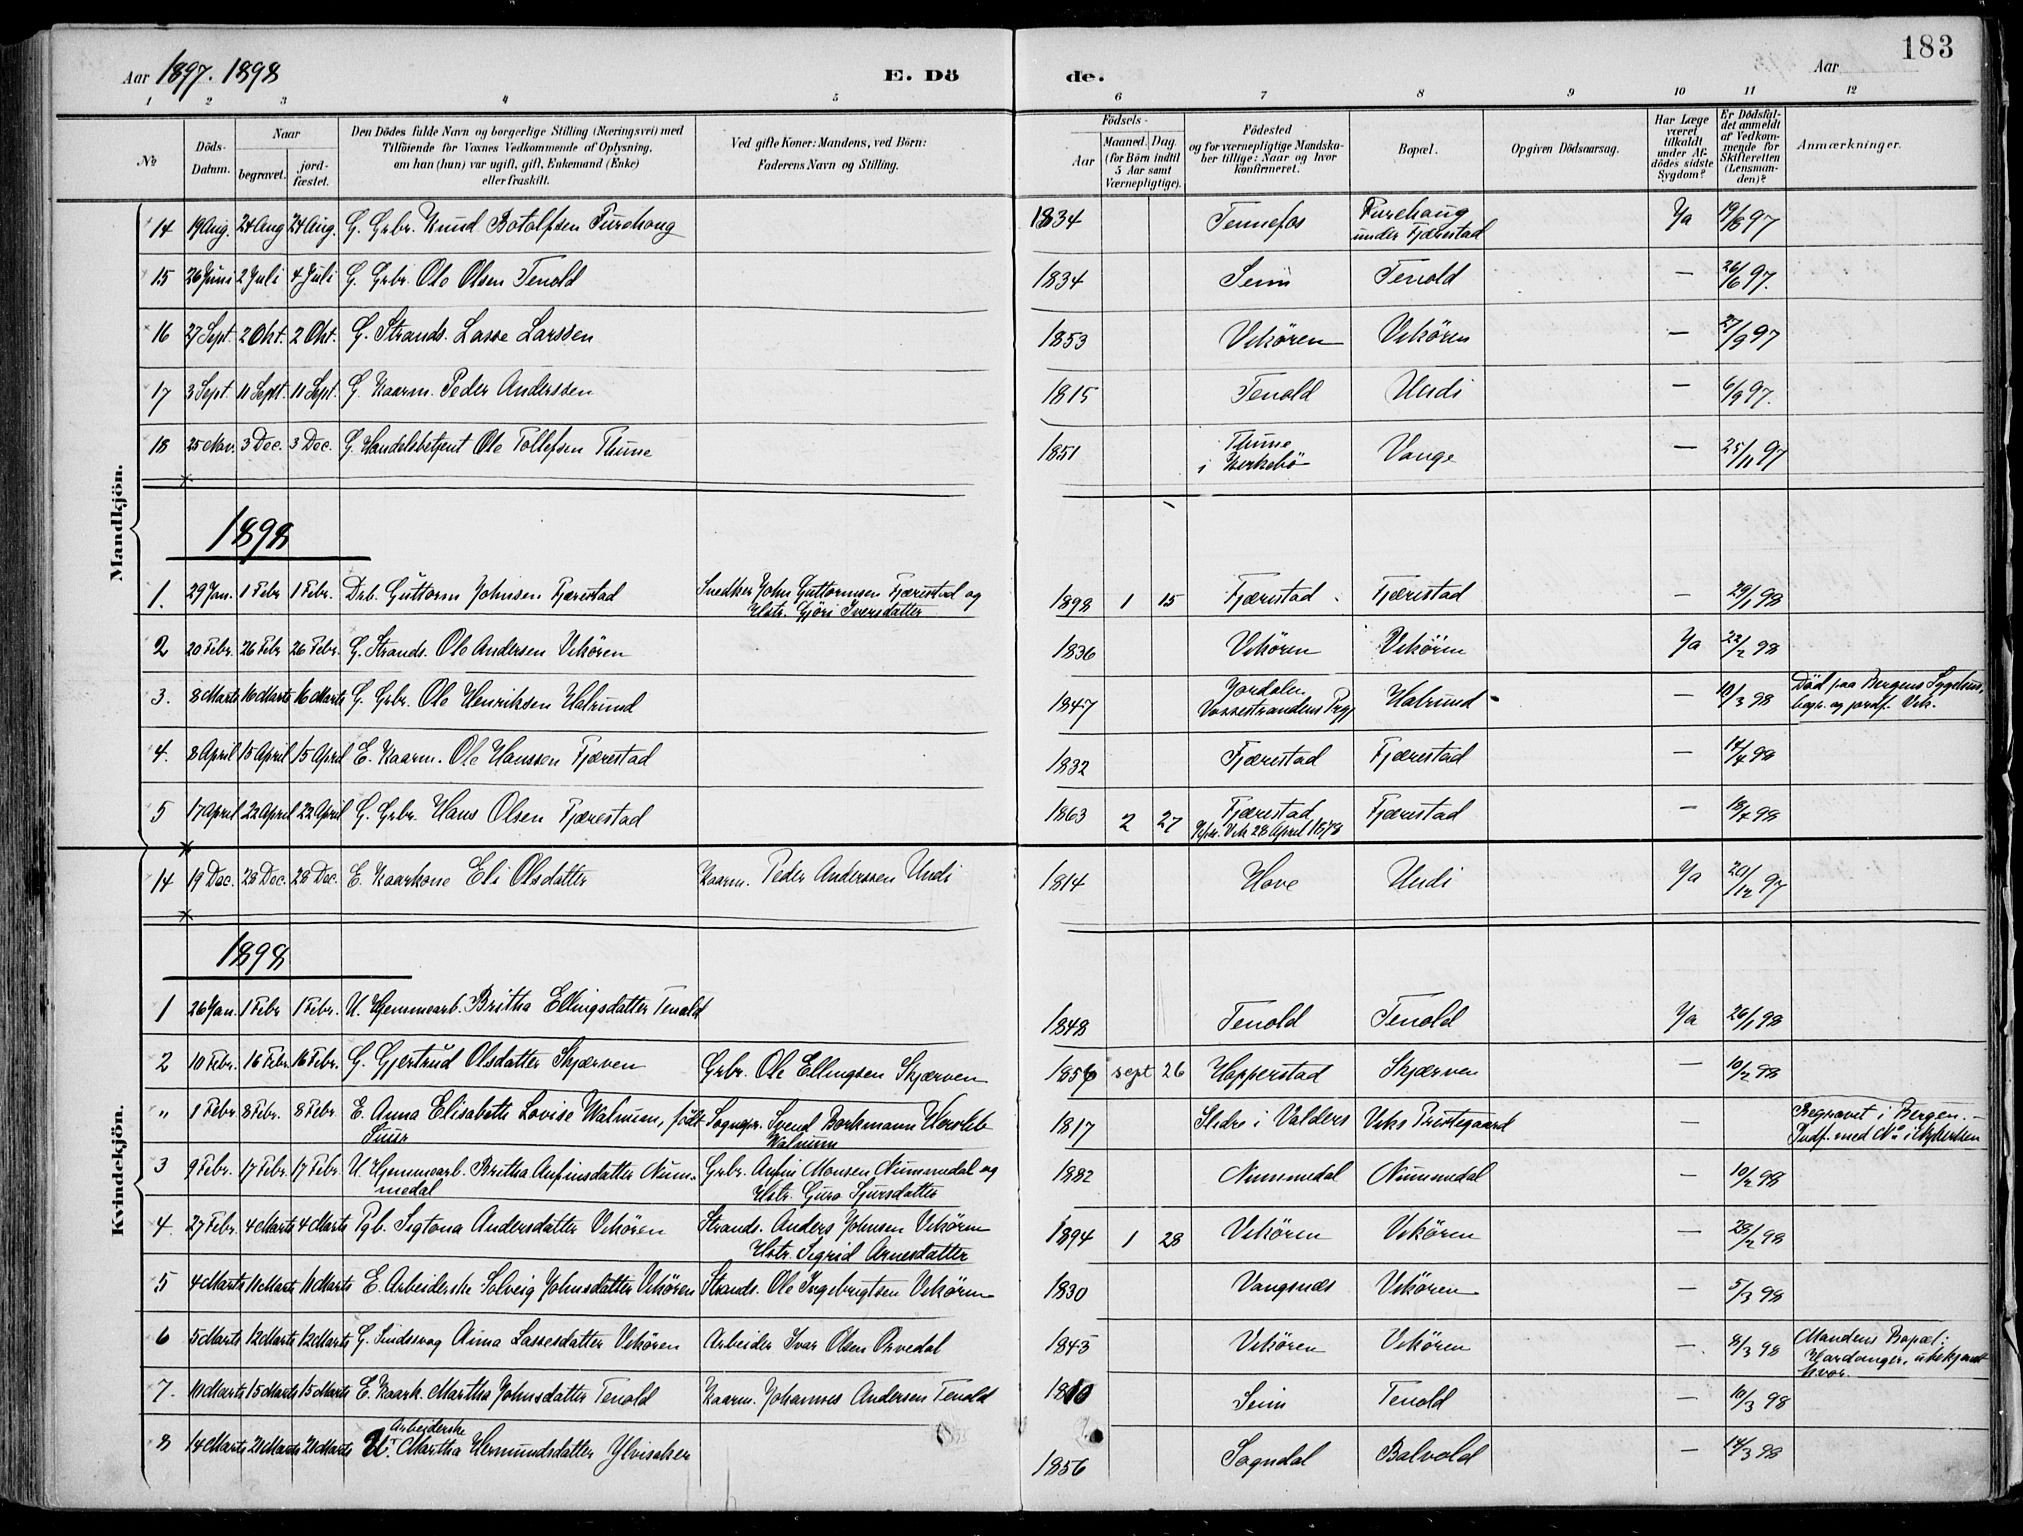 183
Aar 1897. 1898
E. Dö
de.
Aar
1 2 3 4 5 6 7 8 9 10 11 12
№
Döds-Datum.
Naar
begravet.
jord-fæstet.
Den Dödes fulde Navn og borgerlige Stilling (Næringsvei) med
Tilföiende for Voxnes Vedkommende af Oplysning,
om han (hun) var ugift, gift, Enkemand (Enke)
eller fraskilt.
Ved gifte Koner: Mandens, ved Börn:
Faderens Navn og Stilling.
Födsels-
Aar
Maaned. Dag.
(for Börn indtil
5 Aar samt
Værnepligtige).
Födested
og for værnepligtige Mandska-
ber tillige: Naar og hvor
konfirmeret.
Bopæl.
Opgiven Dödsaarsag.
Har Læge
været
tilkaldt
under Af-
dödes sidste
Sygdom?
Er Dödsfal-
det anmeldt
af Vedkom-
mende for
Skifteretten
(Lensman-
den)?
Anmærkninger.
Mandkjön.
14 19 Aug. 24 Aug 24 Aug. G. Grbr. Knud Botolfsen Furehaug 1834 Tennefos Furehaug under Fjærestad Ja 19/8 97
15 26 Juni 2 Juli 4 Juli G. Grbr. Ole Olsen Tenold 1834 Seim Tenold — 26/6 97.
16 27 Sept. 2 Okt. 2 Okt. G. Strands. Lasse Larssen 1853 Vikören Vikören — 27/9 97
17 3 Sept. 11 Sept. 11 Sept. G. Kaarm. Peder Anderssen 1815 Tenold Undi — 6/9 97.
18 25 Nov. 3 Dec. 3 Dec. G. Handelsbetjent Ole Tollefsen Thune 1851 Thune i Kirkebö Vange — 25/11 97
1898
1. 29 Jan. 1 Febr 1 Febr. Drb. Guttorm Johnsen Fjærestad Snedker John Guttormsen Fjærestad og Hstr. Gjöri Iversdatter 1898 1 15 Fjærestad Fjærestad — 29/1 98
2 20 Febr. 26 Febr 26 Febr. G. Strands. Ole Andersen Vikören 1836 Vikören Vikören Ja 22/2 98
3. 8 Marts 16 Marts 16 Marts G. Grbr. Ole Henriksen Halrund 1847 Jordalen Vossestrandens Prgj Halrund — 10/3 98 Död paa Bergens Sygehus, begr. og jordf. Vik.
4. 8 April 15 April 15 April E. Kaarm. Ole Hanssen Fjærestad 1832 Fjærestad Fjærestad — 14/4 98
5 17 April 22 April 22 April G. Grbr. Hans Olsen Fjærestad 1863 2 27 Fjærestad Kfr. Vik 28 April 1878 Fjærestad — 18/4 98
Kvindekjön.
14 19 Dec. 28 Dec. 28 Dec. E. Kaarkone Eli Olsdatter Kaarm. Peder Anderssen Undi 1814 Hove Undi Ja 20/12 97
1898
1 26 Jan. 1 Febr 1 Febr. U. Hjemmearb. Britha Ellingsdatter Tenold 1848 Tenold Tenold Ja 26/1 98
2 10 Febr. 16 Febr 16 Febr. G. Gjertrud Olsdatter Skjærven Grbr. Ole Ellingsen Skjærven 1856 sept 26 Hopperstad Skjærven — 10/2 98
" 1 Febr 8 Febr. 8 Febr E. Anna Elisabeth Lovise Walnum, födt Sognepr. Svend Borkmann Hersleb Walnum 1817 Slidre i Valders Viks Prestegaard — Begravet i Bergen. —
3 9 Febr. 17 Febr. 17 Febr. U. Hjemmearb. Britha Anfinsdatter Nummedal Grbr. Anfin Monsen Nummedal og Hstr. Guro Sjursdatter 1882 Nummedal Nummedal — 10/2 98
4. 27 Febr. 4 Marts 4 Marts Pgb. Sigtona Andersdatter Vikören Strands. Anders Johnsen Vikören Hstr. Sigrid Arnesdatter 1894 1 28 Vikören Vikören — 28/2 98
5 4 Marts 11 Marts 11 Marts E. Arbeiderske Solveig Johnsdatter Vikören Strands. Ole Ingebrigtsen Vikören 1830 Vangsnæs Vikören — 5/3 98
6 5 Marts 12 Marts 12 Marts G. Sindssvag Anna Lassesdatter Vikören Arbeider Ivar Olsen Orvedal 1845 Vikören Vikören — 8/3 98 Mandens Bopæl: Hardanger, ubekjendt hvor.
7. 10 Marts 15 Marts 15 Marts E. Kaark. Martha Johnsdatter Tenold Kaarm. Johannes Andersen Tenold 1810 Seim Tenold — 10/3 98
8 14 Marts 21 Marts 21 Marts U. Arbeiderske Martha Hermundsdatter Ylvisaker 1856 Sogndal Balvold — 14/3 98